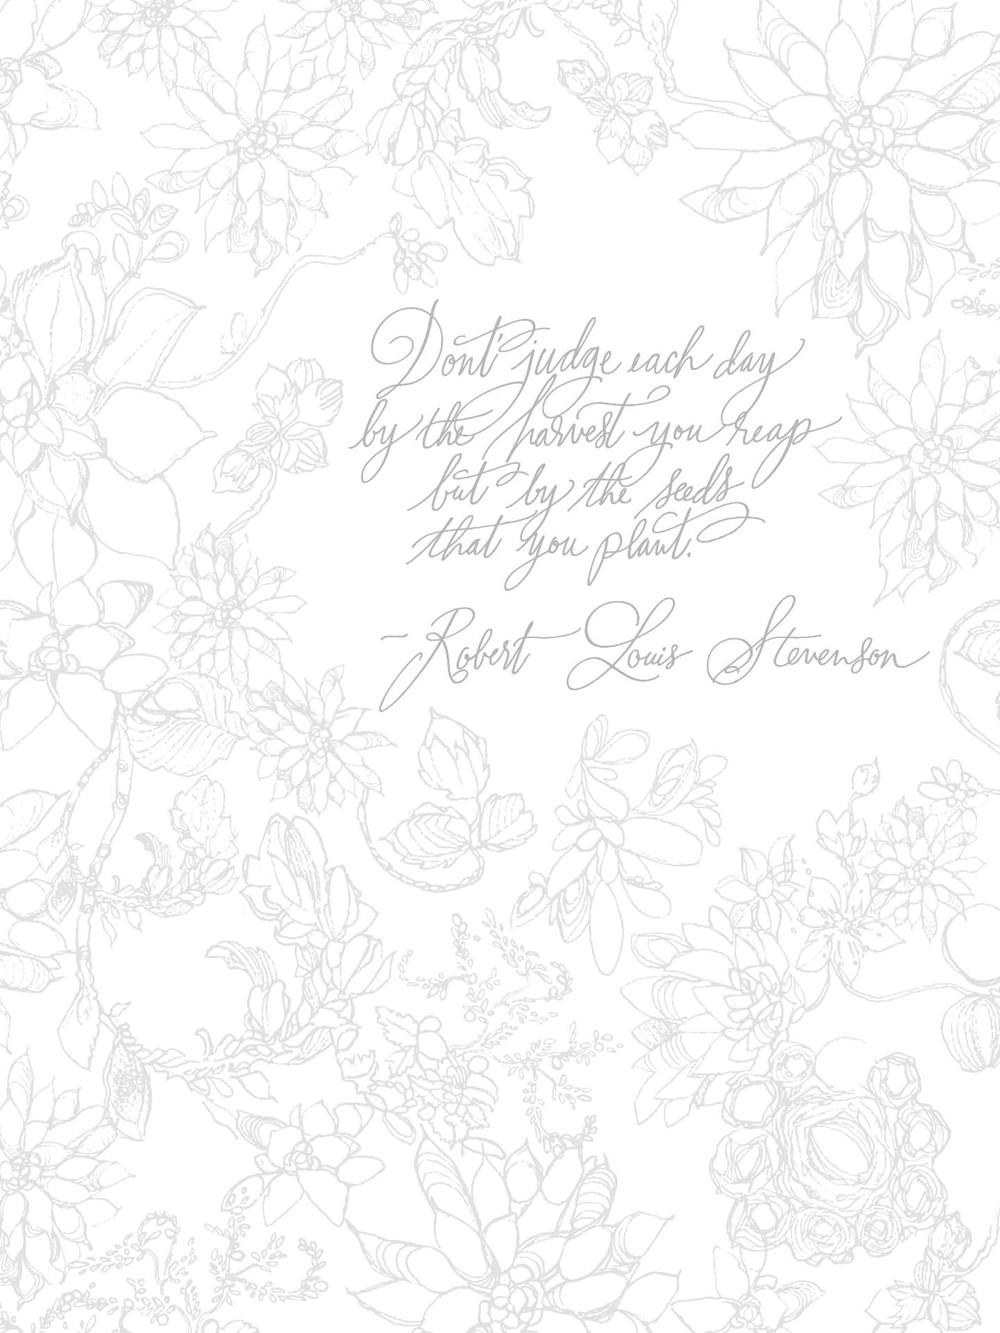 Don't judge each day
by the harvest you reap
but by the seeds
that you plant.
- Robert Louis Stevenson